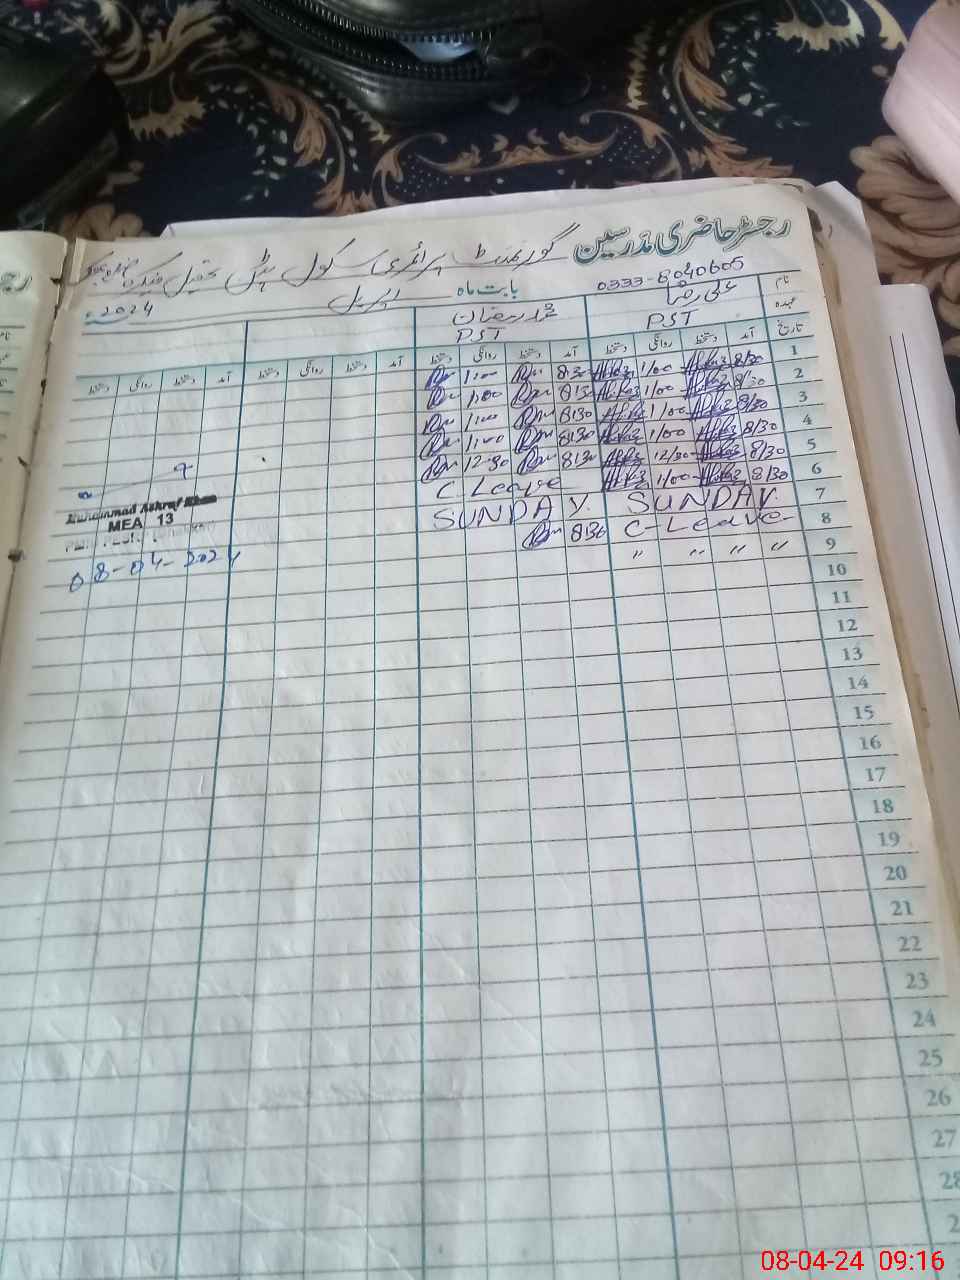 رجسٹر حاضری مدرسین گورنمنٹ پرائمری سکول
بابت ماہ اپریل 2024ء
0333-8040605
نام علی رضا محمد رمضان
عہدہ PST PST
تاریخ آمد دستخط روانگی دستخط آمد دستخط روانگی دستخط آمد دستخط روانگی دستخط آمد دستخط روانگی دستخط
1 8/30 1/00 8:30 1:00
2 8/30 1/00 8:30 1:00
3 8/30 1/00 8:30 1:00
4 8/30 1/00 8:30 1:00
5 8/30 12/30 8:30 12:30
6 8/30 1/00 C Leave
7 SUNDAY SUNDAY
8 C-Leave 8:30
9 " " " "
10
11
12
13
14
15
16
17
18
19
20
21
22
23
24
25
26
27
28
Muhammad Ashraf Khan
MEA 13
08-04-2024
08-04-24 09:16